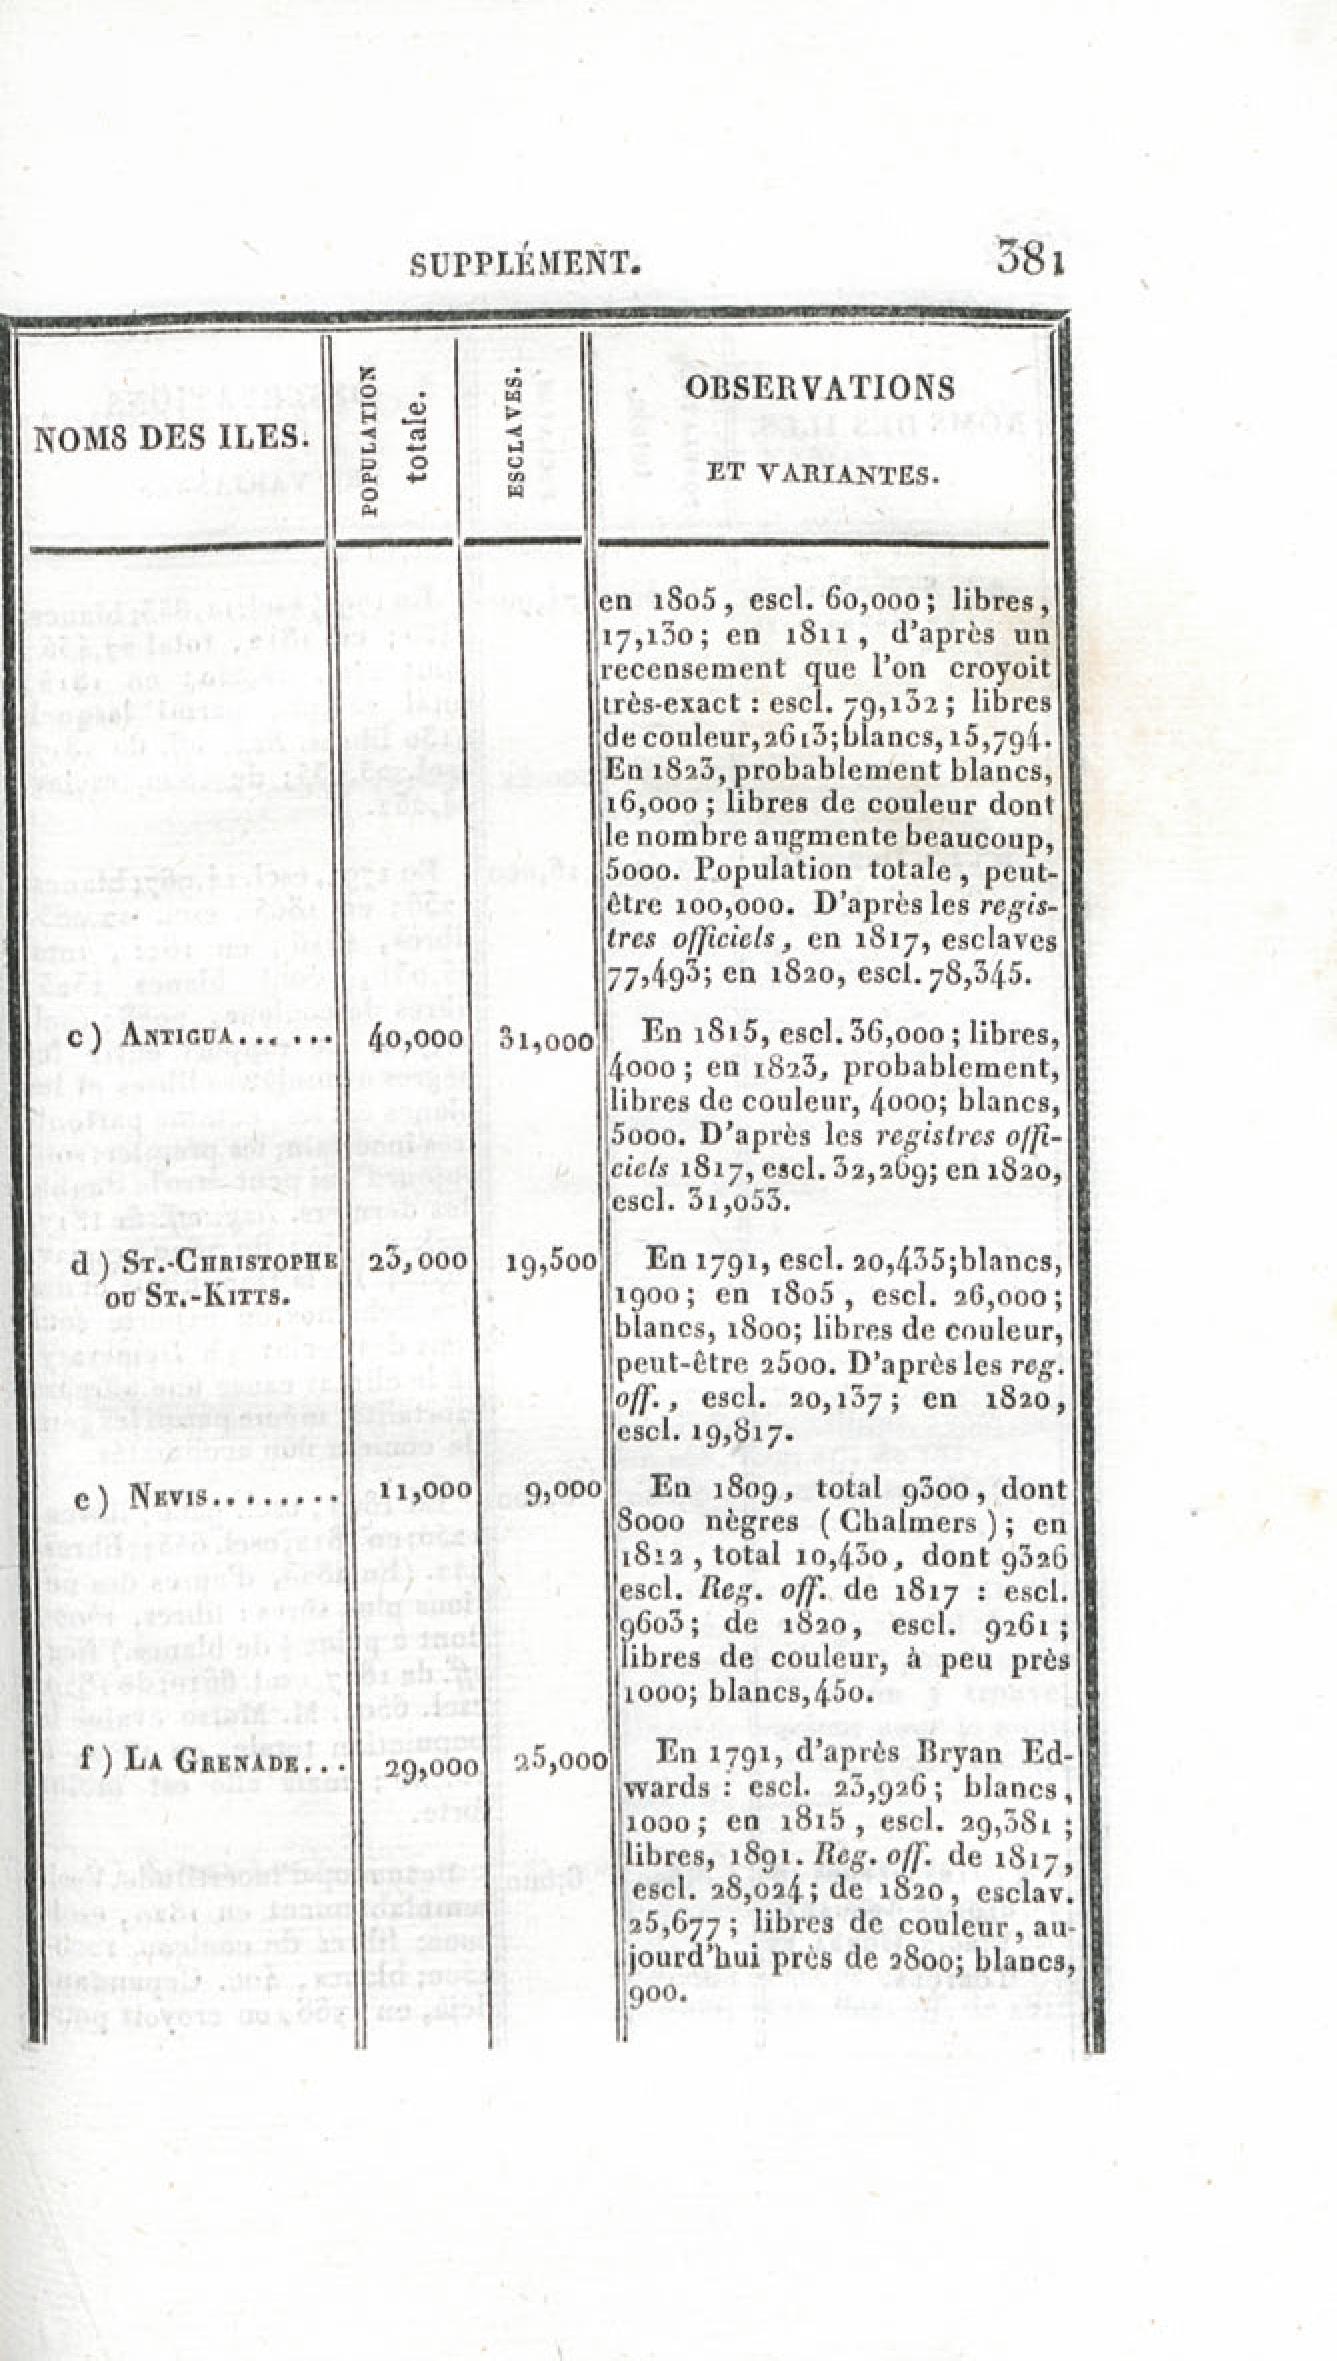 SUPPLÉMENT. 381
NOMS DES ILES.
POPULATION
totale.
ESCLAVES.
OBSERVATIONS
ET VARIANTES.
en 1805, escl. 60,000; libres,
17,130; en 1811, d'après un
recensement que l'on croyoit
très-exact : escl. 79,132; libres
de couleur, 2613; blancs, 15,794.
En 1823, probablement blancs,
16,000; libres de couleur dont
le nombre augmente beaucoup,
5000. Population totale, peut-
être 100,000. D'après les regis-
tres officiels, en 1817, esclaves
77,493; en 1820, escl. 78,345.
c) ANTIGUA...... 40,000 31,000 En 1815, escl. 36,000; libres,
4000; en 1823, probablement,
libres de couleur, 4000; blancs,
5000. D'après les registres offi-
ciels 1817, escl. 32,269; en 1820,
escl. 31,053.
d) ST.-CHRISTOPHE 23,000 19,500 En 1791, escl. 20,435; blancs,
OU ST.-KITTS. 1900; en 1805, escl. 26,000;
blancs, 1800; libres de couleur,
peut-être 2500. D'après les reg.
off., escl. 20,137; en 1820,
escl. 19,817.
e) NEVIS......... 11,000 9,000 En 1809, total 9300, dont
8000 nègres (Chalmers); en
1812, total 10,430, dont 9326
escl. Reg. off. de 1817 : escl.
9603; de 1820, escl. 9261;
libres de couleur, à peu près
1000; blancs, 450.
f) LA GRENADE... 29,000 25,000 En 1791, d'après Bryan Ed-
wards : escl. 23,926; blancs,
1000; en 1815, escl. 29,381;
libres, 1891. Reg. off. de 1817,
escl. 28,024; de 1820, esclav.
25,677; libres de couleur, au-
jourd'hui près de 2800; blancs,
900.